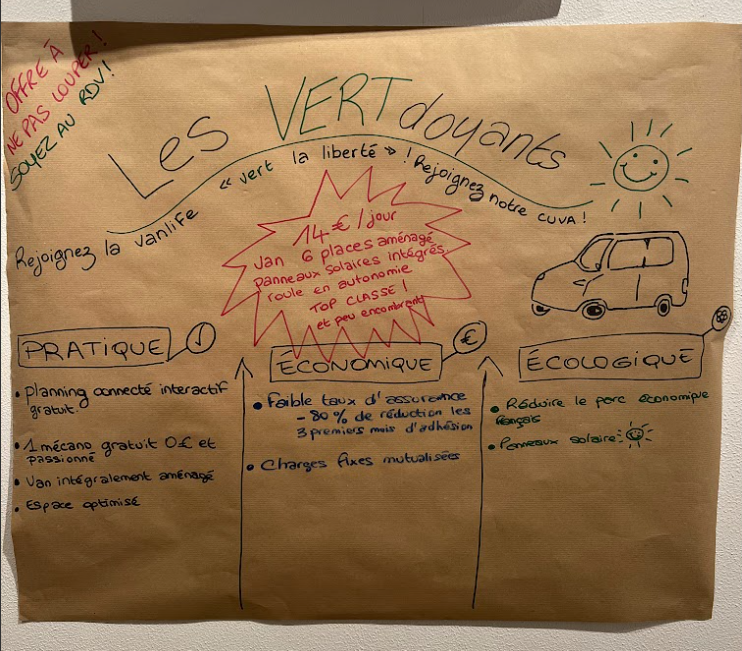 OFFRE À
NE PAS LOUPER !
SOYEZ AU RDV!
Les VERTdoyants
Rejoignez la vanlife « vert la liberté » ! Rejoignez notre CUVA !
14 € / jour
Van 6 places aménagé
Panneaux solaires intégrés,
roule en autonomie
TOP CLASSE !
et peu encombrant
PRATIQUE
• planning connecté interactif
gratuit.
• 1 mécano gratuit 0£ et
passionné
• Van intégralement aménagé
• Espace optimisé
ÉCONOMIQUE
€
• Faible taux d'assurance
- 80 % de réduction les
3 premiers mois d'adhésion
• Charges fixes mutualisées
ÉCOLOGIQUE
• Réduire le parc économique
• Panneaux solaire: